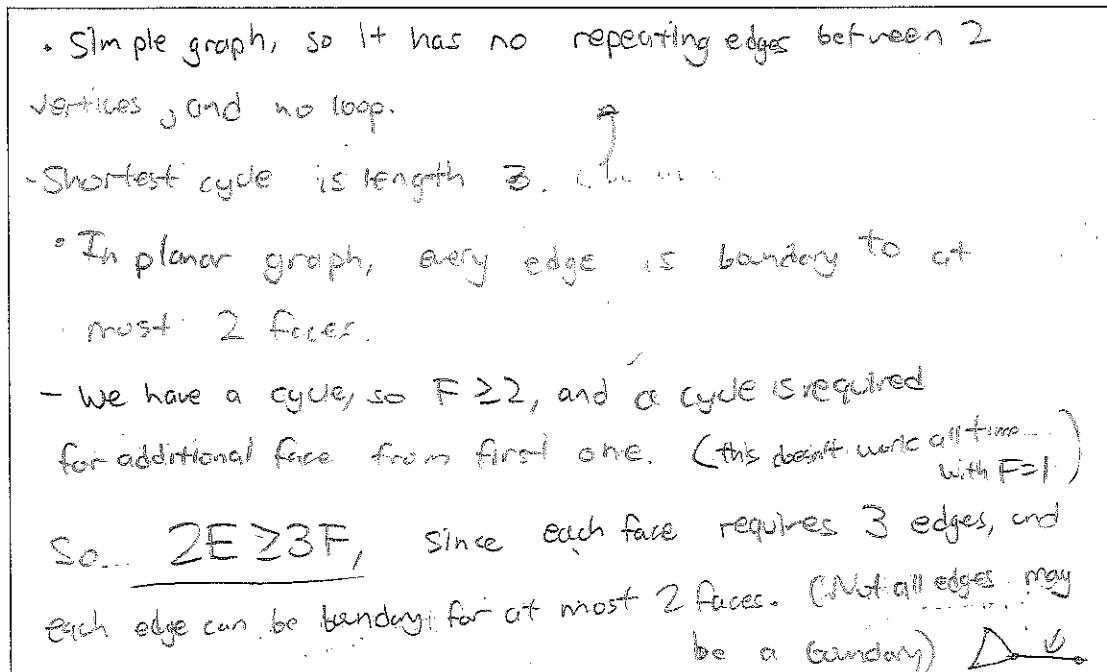 • Simple graph, so it has no repeating edges between 2
vertices, and no loop.
- Shortest cycle is length 3.
• In planar graph, every edge is boundary to at
most 2 faces.
- We have a cycle, so F ≥ 2, and a cycle is required
for additional face from first one. (this doesn't work all time...
with F=1)
So... 2E ≥ 3F, since each face requires 3 edges, and
each edge can be boundary for at most 2 faces. (Not all edges may
be a boundary)